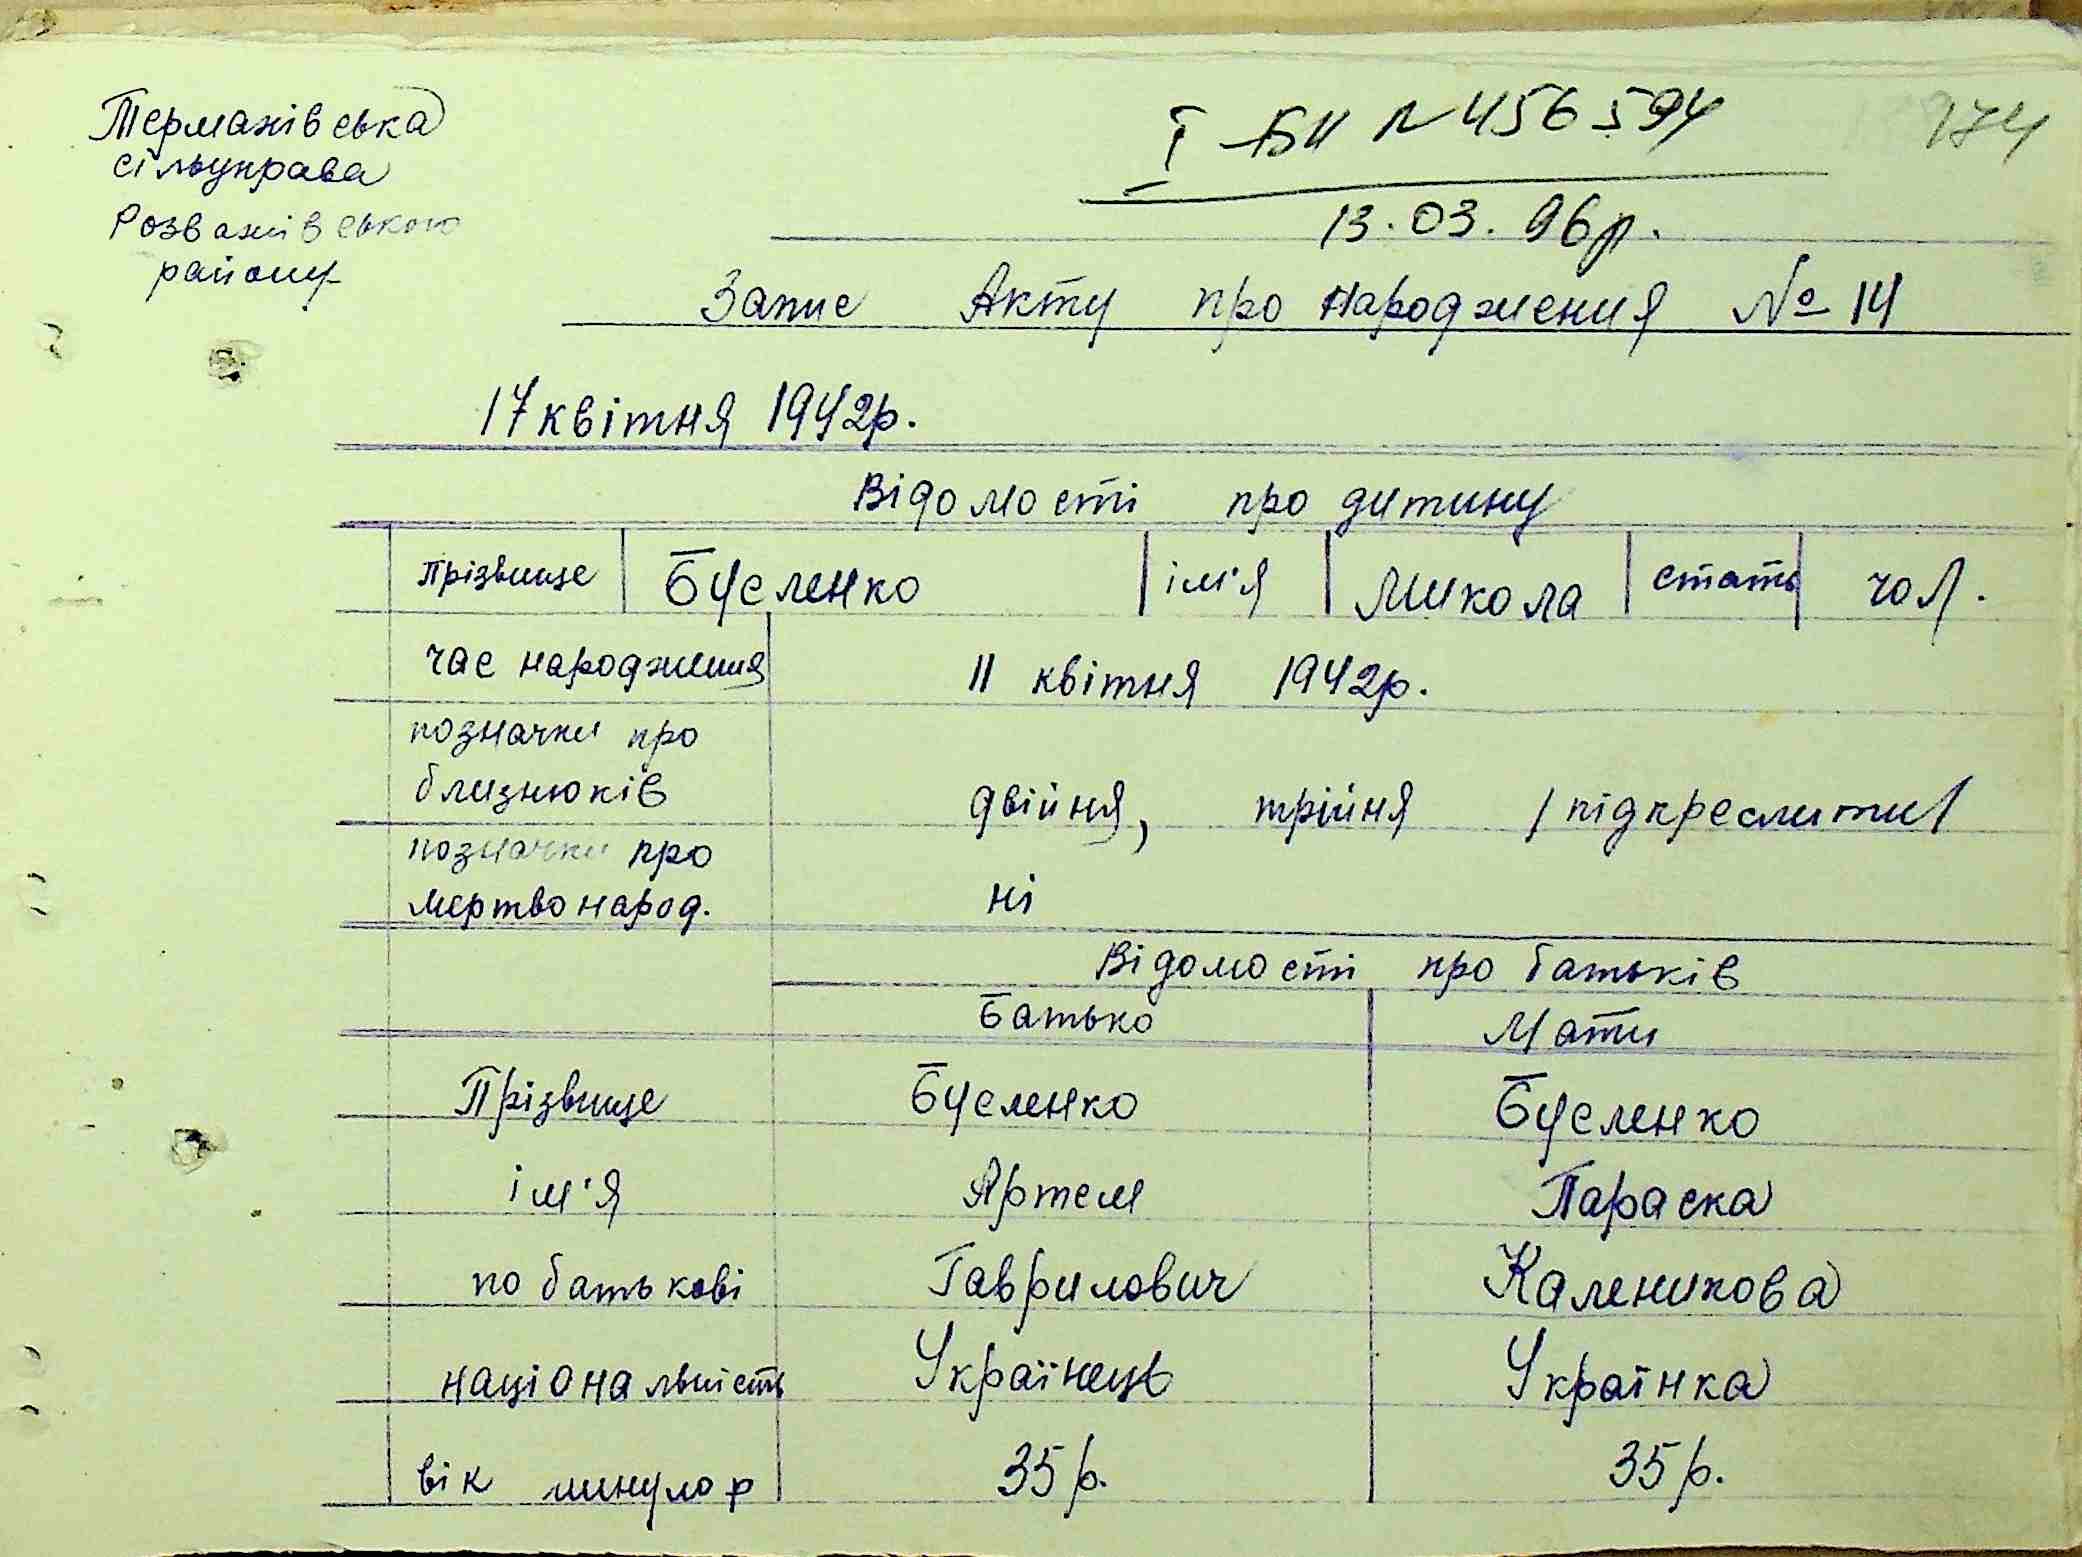 Термахівська
сільуправа
Розважівського
району
I-БК N 456594
174
13.03.96р.
Запис Акту про народження № 14
17 квітня 1942р.
Відомості про дитину
прізвище Бусленко ім'я Микола стать чол.
час народження 11 квітня 1942р.
позначки про
близнюків двійня, трійня /підкреслити/
позначки про
мертвонарод. ні
Відомості про батьків
Батько Мати
Прізвище Бусленко Бусленко
ім'я Артем Параска
по батькові Гаврилович Каленикова
національність Українець Українка
вік минулор 35р. 35р.